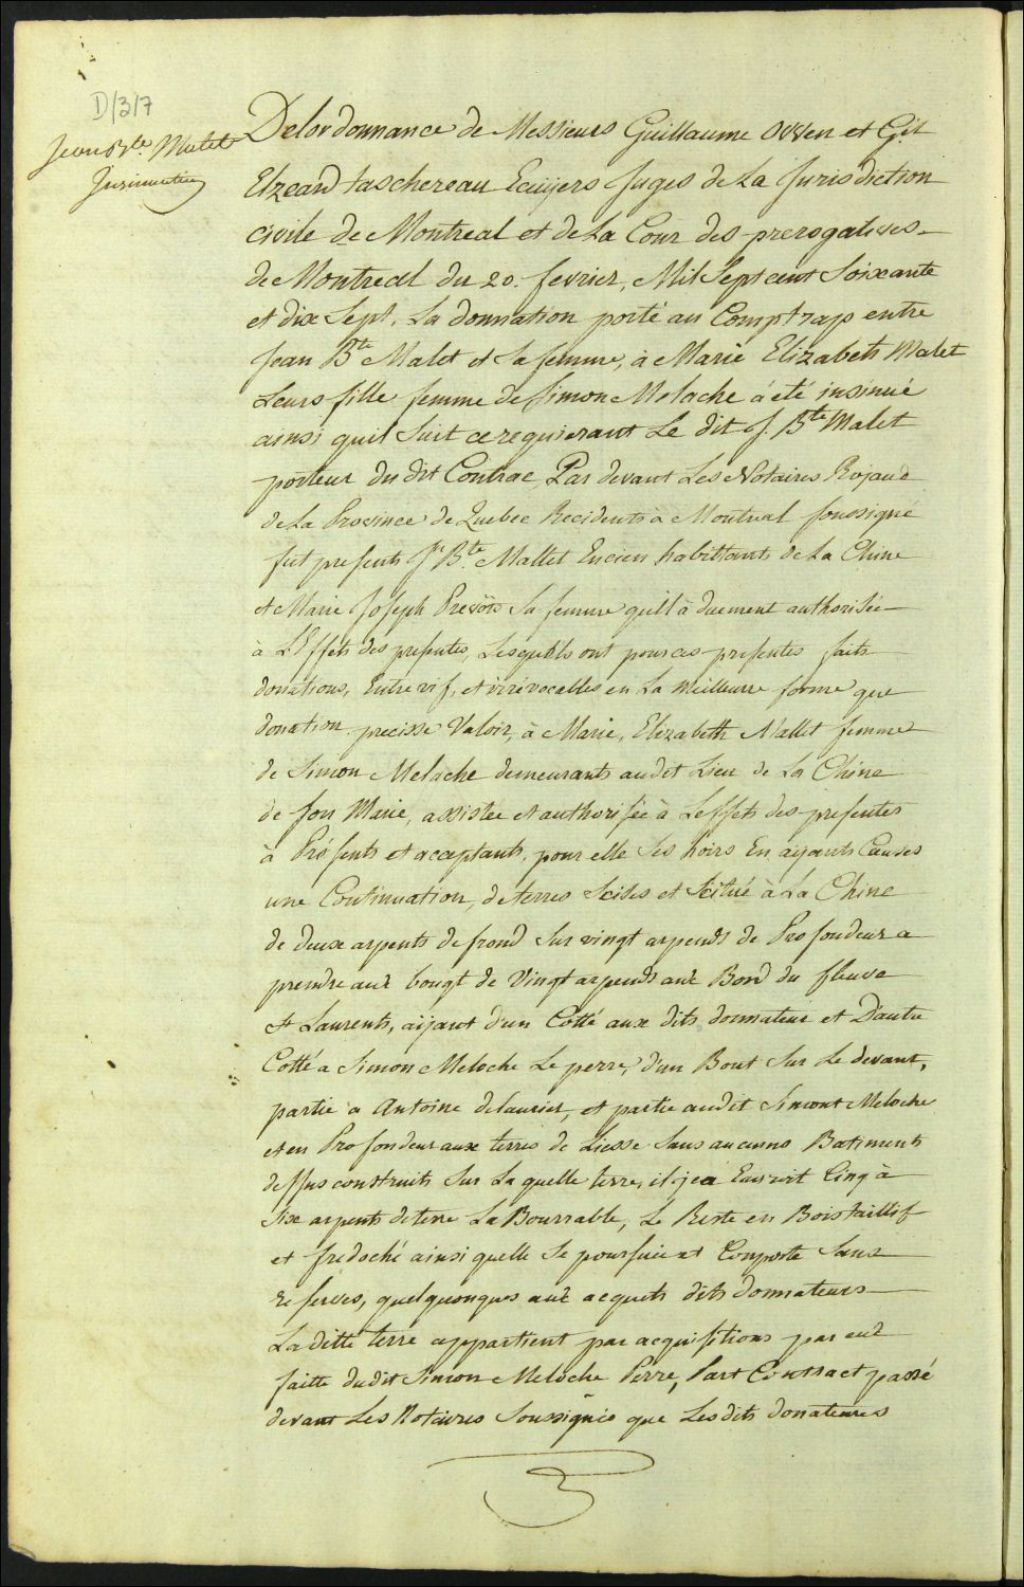 D/3/7
Jean Bte Malet
Insinuation
Delordonnance de Messieurs Guillaume Owen et Gil
Elzeard taschereau Ecuijers Juges de La Jurisdiction
civile de Montreal et de La Cour des prerogatives
de Montreal du 20. fevrier, Mil Sept cent Soixante
et dix Sept. La donnation porté au Compt rap entre
Jean Bte Malet et Sa femme, à Marie Elizabeth Malet
Leurs fille femme de Simon Meloche á été insinué
ainsi quil Suit ce requierant Le dit J. Bte Malet
porteur du dit Contrac Par devant Les Notaires Rojaux
de La Province de Quebec Recidents à Montreal soussigne
fut presents Jn Bte Mallet Encien habittants de La Chine
et Marie Joseph Sa femme quill à duement authorisée
à L'Effets des presentes, Lesquells ont pour ces presentes faits
donations, Entre vif, et irrévocables en La meilleure forme que
donation precisse Valoir, à Marie, Elizabeth Mallet femme
de Simon Meloche demeurants audit Lieu de La Chine
de son Marie, assistée et authorisée à Leffets des presentes
à Présents et acceptants, pour elle Ses hoirs En aijants Causes
une Continuation, de terres Scises et Scitué à La Chine
de deux arpents de frond Sur vingt arpends de Profondeur a
prendre aux bougt de Vingt arpends aux Bord du fleuve
St Laurents, aijant d'un Cotté aux dits donnateur et D'autre
Cotté a Simon Meloche Le perre, d'un Bout Sur Le devant,
partie a Antoine delaurier, et partie audit Simont Meloche
et en Profondeur aux terres de Liesse Sans aucuns Batiments
dessus construits Sur Laquelle terre, il y a Environt Cinq à
Six arpents de terre La Bourrable, Le Reste en Bois taillif
et fredoché ainsi quelle Se poursuie et Comporte Sans
reserves, quelquonques aux acquets dits donnateurs
La ditte terre appartient par acquisitions par eux
faitte dudit Simon Meloche Perre, Part Contract passé
devant Les Notaires Soussignés que Lesdits donateurs